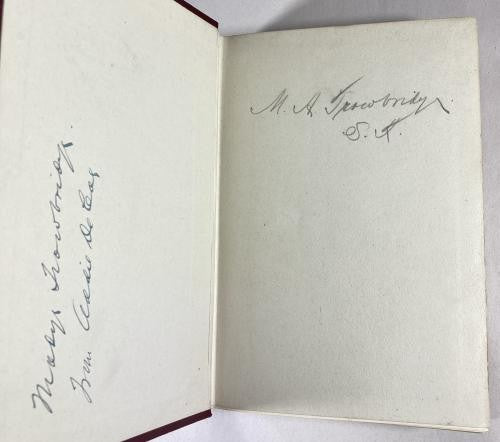 Madge Trowbridge.
from Addie De
M. A. Trowbridge.
S. K.